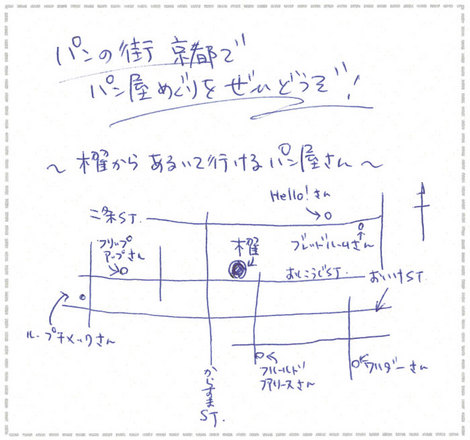 パンの街 京都で
パン屋めぐりをぜひどうぞ!
～櫂からあるいて行けるパン屋さん～
Hello!さん
二条ST.
フリップ
アップさん
櫂
ブレッドルームさん
おしこうじST.
おいけST.
ル・プチメックさん
からすま
ST.
アリースさん
フリダーさん